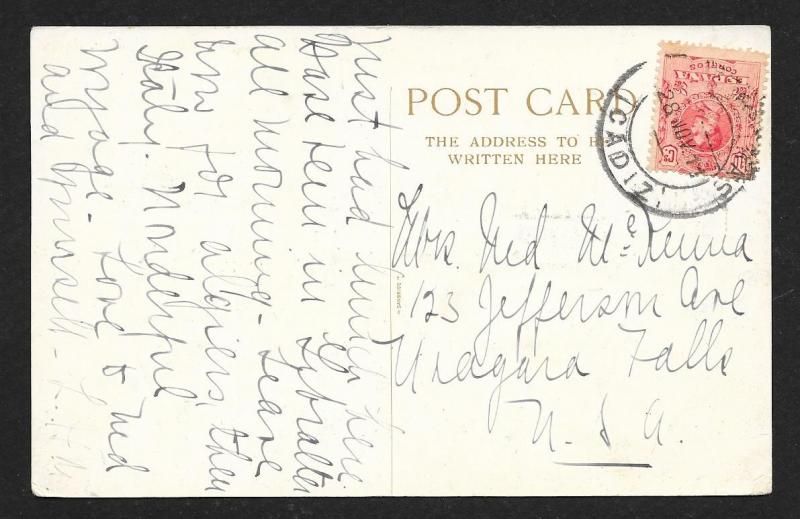 Just had lunch here
Have been in Gybralter
all morning - Leave
now for algiers, then
Italy. Wonderful
voyage - Love to Ned
and yourself -
POST CARD
THE ADDRESS TO BE
WRITTEN HERE
Mrs. Ned McKenna
123 Jefferson Ave
Niagara Falls
U.S.A.
ESPAÑA
CORREOS
28 NOV
CADIZ